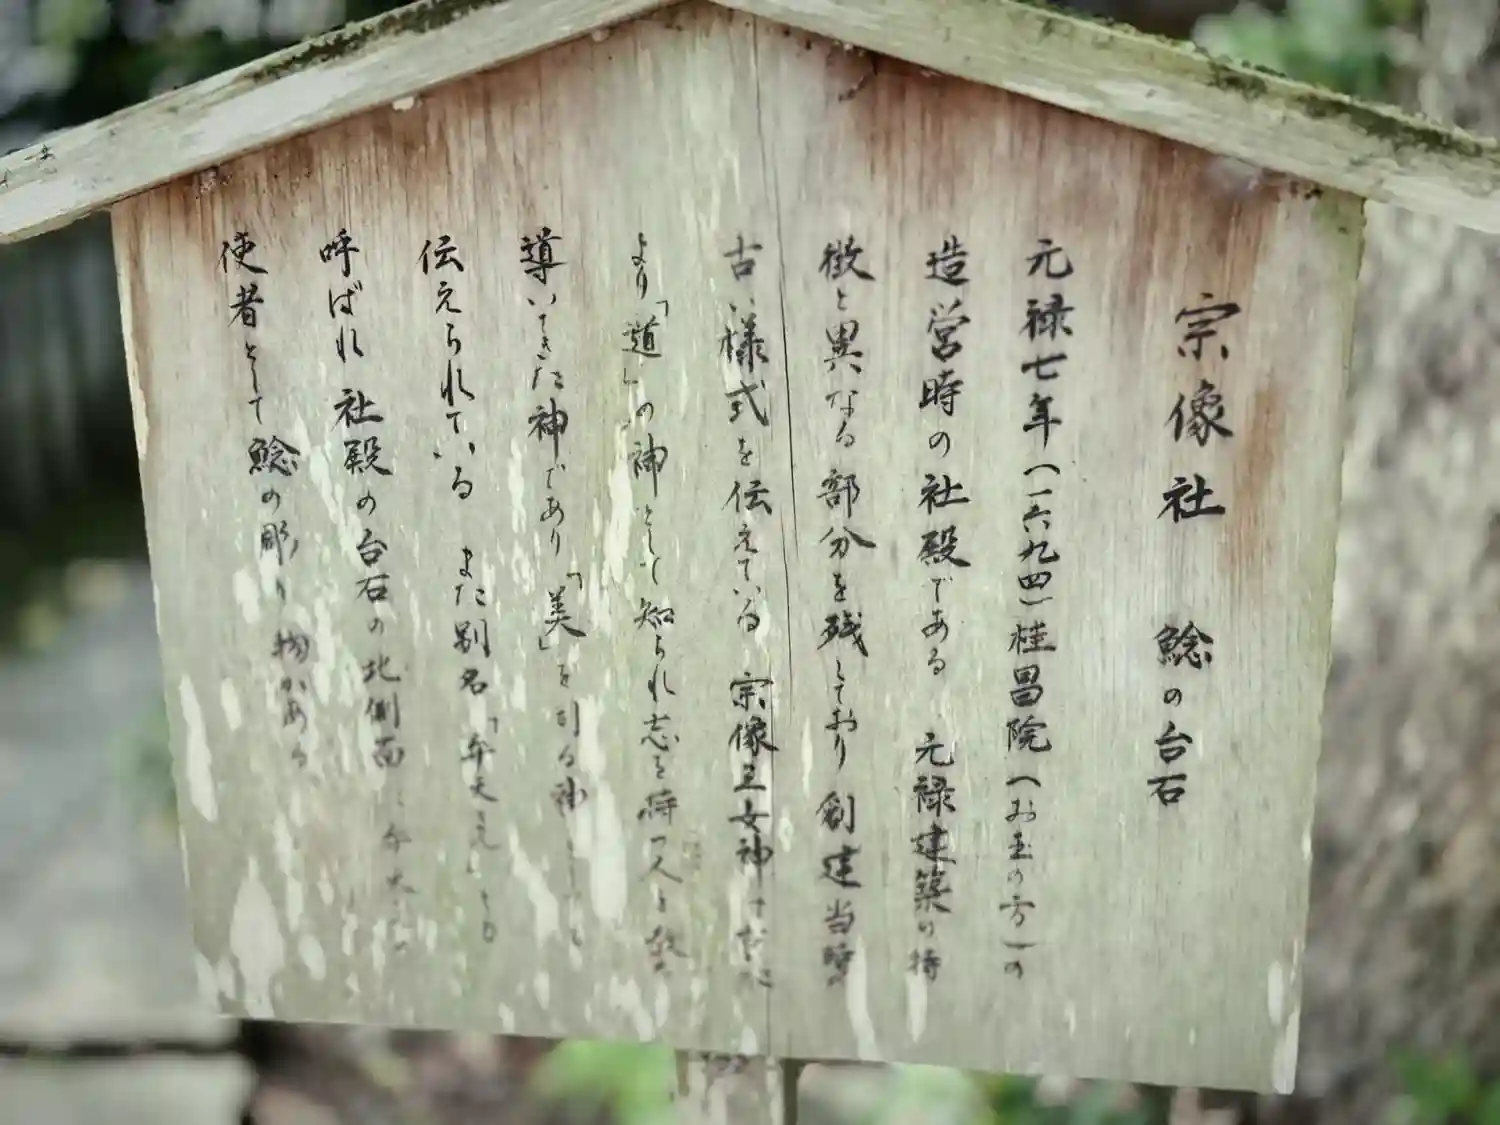 宗像社 鯰の台石
元禄七年(一六九四)桂昌院(お玉の方)の
造営時の社殿である 元禄建築の特
徴と異なる部分を残しており創建当時
古い様式を伝えている 宗像三女神は
より「道」の神として知られ志を持つ人を
導いてきた神であり「美」を司る神としても
伝えられている また別名「弁天さん」とも
呼ばれ社殿の台石の北側面に
使者として鯰の彫り物がある